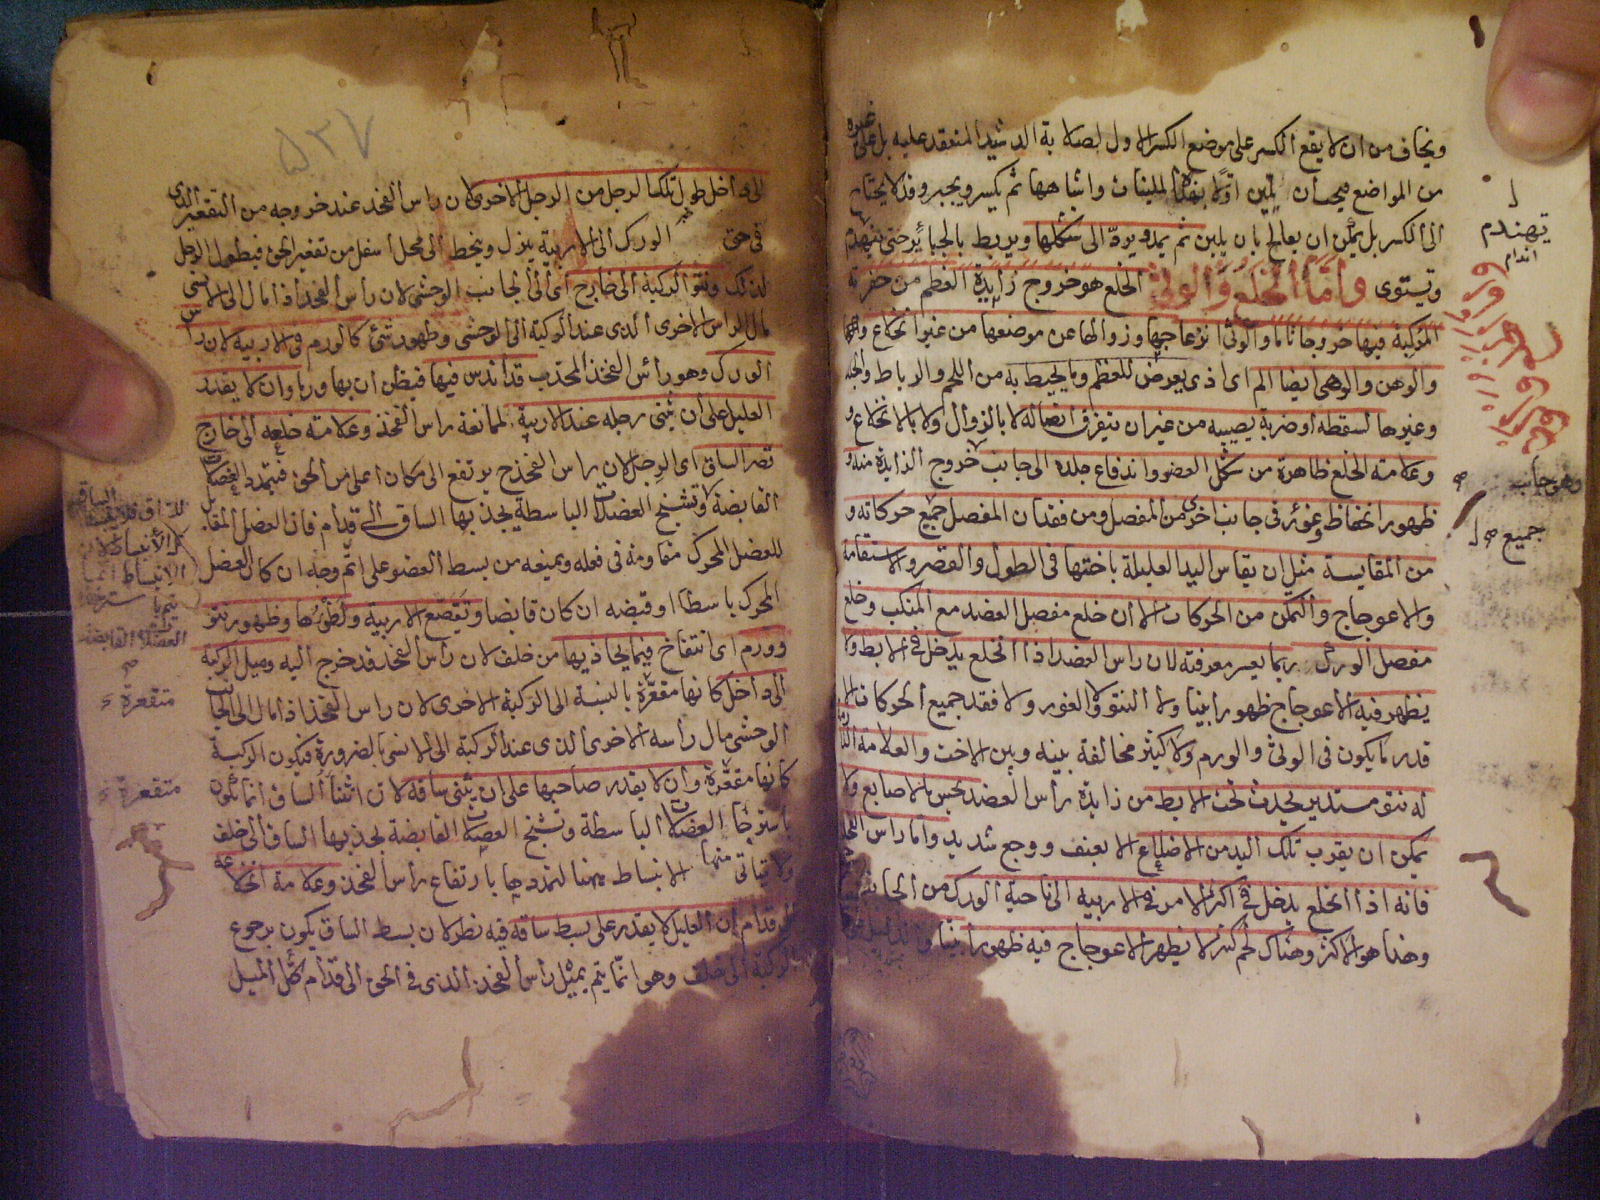 ويخاف من ان لا يقع الكسر على موضع الكسر الاول لصلابة الدشيد المنعقد عليه بل على غيره
من المواضع فيجب ان يلين اولا بهذه الملينات واشباهها ثم يكسر ويجبر وقد لا يحتاج
الى الكسر بل يمكن ان يعالج بان يلين ثم يمد ويرد الى شكلها ويربط بالجبائر حتى يتهندم
ويستوى واما الخلع والوثى الخلع هو خروج زايدة العظم من حفرته
المركبة فيها خروجا تاما والوثى انزعاجها وزوالها عن موضعها من غير انخلاع
والوهن والوهى ايضا الم اى اذى يعرض للعظم وما يحيط به من اللحم والرباط والجلد
وغيرها لسقطة او ضربة يصيبه من غير ان يتفرق اتصاله لا بالزوال ولا بالانخلاع و
وعلامة الخلع ظاهرة من شكل العضو واندفاع جلده الى جانب خروج الزايدة منه و
ظهور انخفاظ وغور فى جانب اخر من المفصل ومن فقدان المفصل جميع حركاته و
من المقايسة مثل ان يقاس اليد العليلة باختها فى الطول والقصر والاستقامة
والاعوجاج والتمكن من الحركات الا ان خلع مفصل العضد مع المنكب وخلع
مفصل الورك ربما يعسر معرفته لان راس العضد اذا انخلع يدخل فى الابط ولا
يظهر فيه الاعوجاج ظهورا بينا ولا النتو والغور ولا فقد جميع الحركات الا
قدر ما يكون فى الوثى والورم ولا كثير مخالفة بينه وبين الاخت والعلامة
له نتو مستدير يحدث تحت الابط من زايدة راس العضد يحس بالاصابع ولا
يمكن ان يقرب تلك اليد من الاضلاع الا بعنف ووجع شديد واما راس الفخذ
فانه اذا انخلع يدخل فى اكثر الامر فى الاربية الى ناحية الورك من الجانب
وهذا هو الاكثر وهناك لحم كثير لا يظهر الاعوجاج فيه ظهورا بينا
يتهندم
اندام
وهى جانب
جميع
٥٢٧
الى داخل طول تلك الرجل من الرجل الاخرى لان راس الفخذ عند خروجه من التقعير الذى
فى حق الورك الى الاربية ينزل وينخط الى محل اسفل من تقعير الحق فيطول الرجل
لذلك ونتو الركبة الى خارج اى الى الجانب الوحشى لان راس الفخذ اذا مال الى الانسى
مال الراس الاخرى الذى عند الركبة الى الوحشى وظهور شئ كالورم فى الاربية لان
الورك وهو راس الفخذ المحدب قد اندس فيها فيظن ان بها ورما وان لا يقدر
العليل على ان يثنى رجله عند الاربية لممانعة راس الفخذ وعلامة خلعه الى خارج
قصر الساق اى الرجل لان راس الفخذ ح يرتفع الى مكان اعلى من الحق فيتمدد العضلات
القابضة وتشنج العضلات الباسطة يجذبها الساق الى قدام فان العضل المقابل
للعضل المحرك مقاومة فى فعله ويمنعه من بسط العضو على اتم وجه ان كان العضل
المحرك باسطا او قبضه ان كان قابضا وتقصع الاربية ولطؤها وظهور نتو
وورم اى انتفاخ فيما يحاذيها من خلف لان راس الفخذ قد خرج اليه وميل الركبة
الى داخل كانها مقعرة بالنسبة الى الركبة الاخرى لان راس الفخذ اذا مال الى الجانب
الوحشى مال راسه الاخرى الذى عند الركبة الى الانسى بالضرورة فيكون الركبة
كانها مقعرة وان لا يقدر صاحبها على ان يثنى ساقه لان انثناء الساق انما يكون
باسترخاء العضلات الباسطة وتشنج العضلات القابضة يجذبها الساق الى خلف
ولا يتاتى منها الانبساط ههنا لتمددها بارتفاع راس الفخذ وعلامة انخلاعه
الى قدام ان العليل لا يقدر على بسط ساقه فيه نظر لان بسط الساق يكون برجوع
الركبة الى خلف وهو انما يتم بميل راس الفخذ الذى فى الحق الى قدام كل الميل
متقعرة
متقعرة